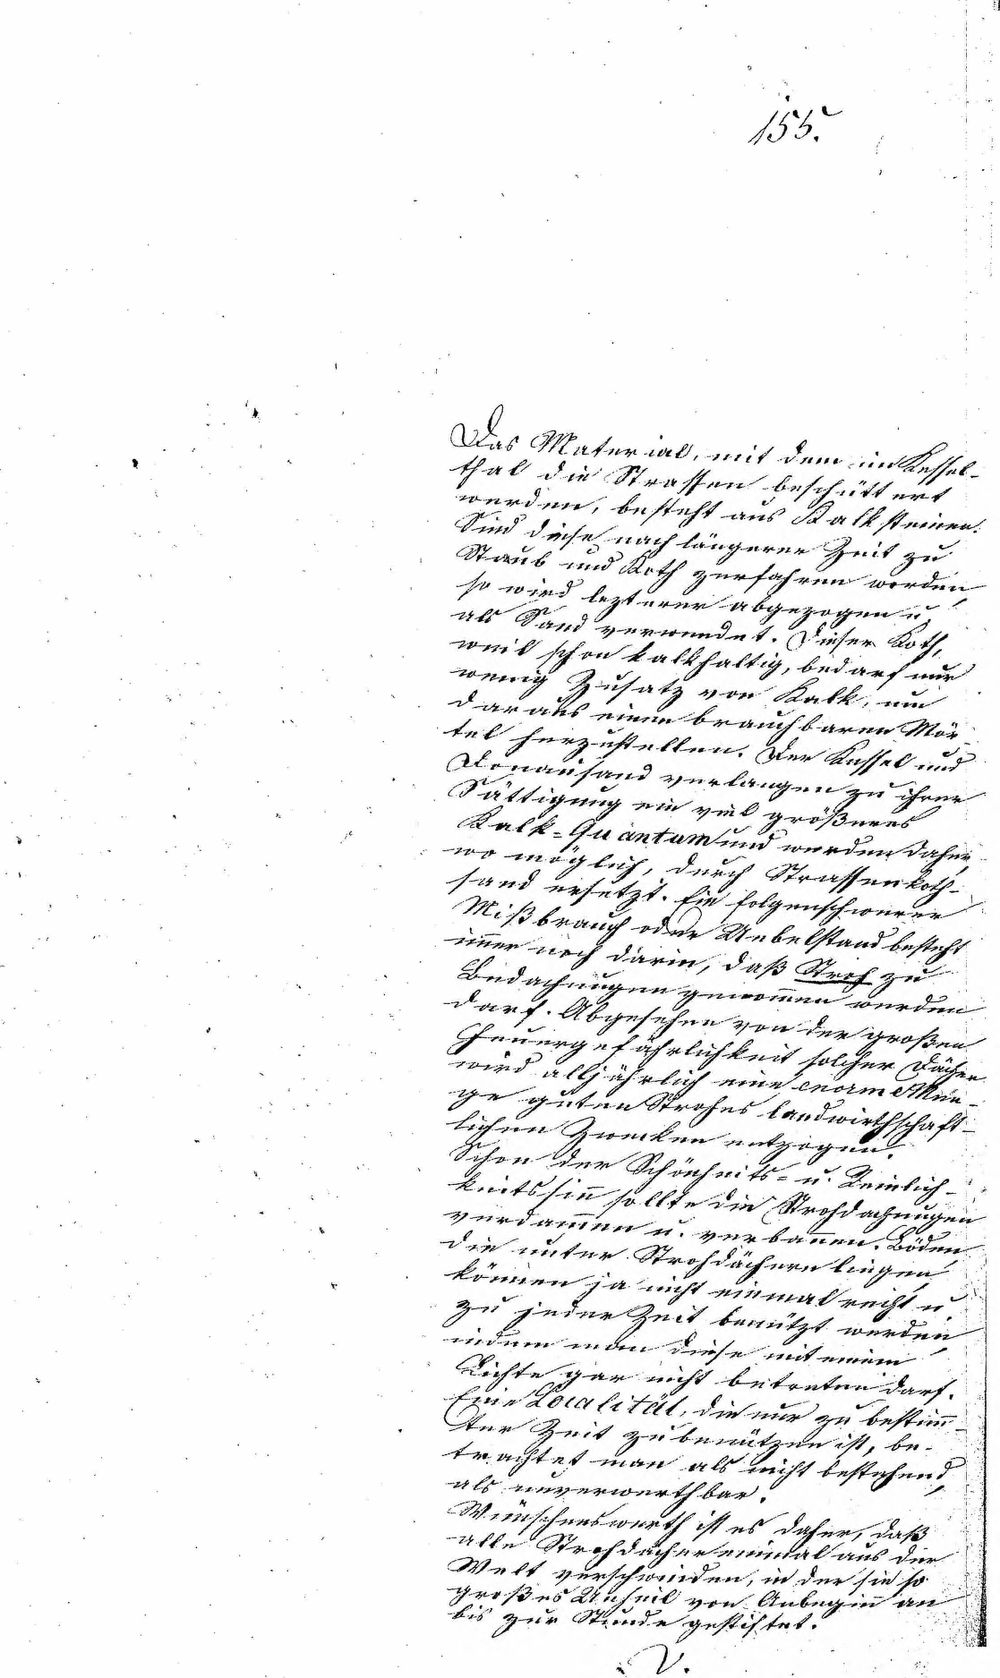 155.
Das Material, mit dem im Kessel-
thal die Strassen beschüttert
werden, besteht aus Kalksteinen.
Sind diese nach längerer Zeit zu
Staub und Koth zerfahren worden,
so wird lezterer abgezogen u.
als Sand verwendet. Dieser Koth,
weil schon kalkhaltig, bedarf nur
wenig Zusatz von Kalk, um
daraus einen brauchbaren Mör-
tel herzustellen. Der Kessel und
Donausand verlangen zu ihrer
Sättigung ein viel größeres
Kalk-Quantum und werden daher,
wo möglich, durch Strassenkoth-
sand ersetzt. Ein folgenschwerer
Mißbrauch oder Uebelstand besteht
im̅er noch darin, daß Stroh zu
Bedachungen genom̅en werden
darf. Abgesehen von der großen
Feuergefährlichkeit solcher Dächer
wird alljährlich eine enorme Men-
ge guten Strohes landwirthschaft-
lichen Zwecken entzogen.
Schon der Schönheits- u. Reinlich-
keitssin̅ sollte die Strohdachungen
verdam̅en u. verban̅en. Böden,
die unter Strohdächern liegen,
kön̅en ja nicht einmal recht u.
zu jeder Zeit benützt werden,
indem man diese mit einem
Lichte gar nicht betreten darf.
Eine Localität, die nur zu bestim̅-
ter Zeit zu benützen ist, be-
trachtet man als nicht bestehend,
als unverwerthbar.
Wünschenswerth ist es daher, daß
alle Strohdächer einmal aus der
Welt verschwinden, in der sie so
großes Unheil von Anbegin̅ an
bis zur Stunde gestiftet.
V.